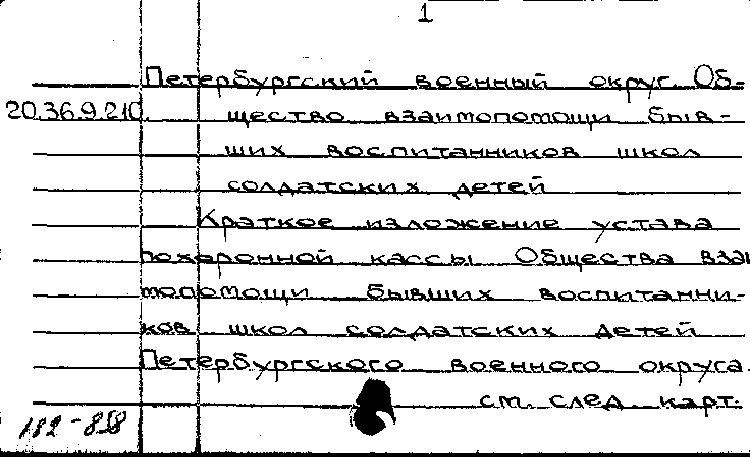 1
Петербургский военный округ. Об-
20.36.9.210. щество взаимопомощи быв-
ших воспитанников школ
солдатских детей
Краткое изложение устава
похоронной кассы Общества взаи
мопомощи бывших воспитанни-
ков школ солдатских детей
Петербургского военного округа.
см. след. карт.
182-858